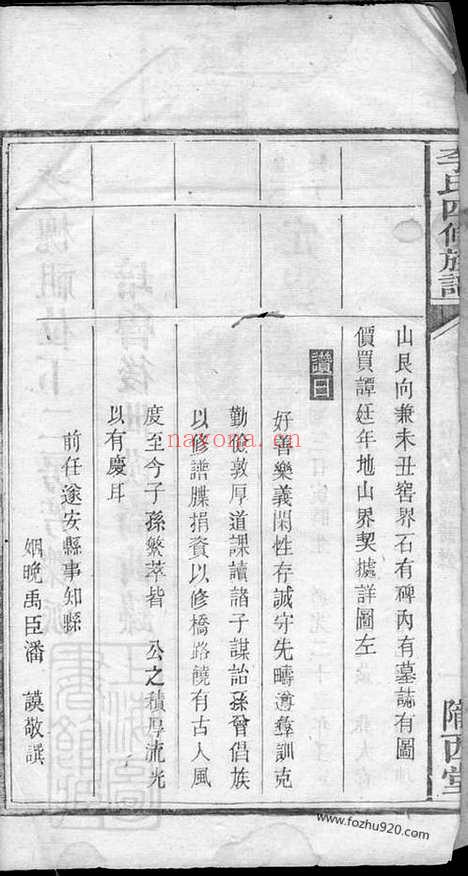 李氏四修族譜
隴西堂
山艮向兼未丑窖界石有碑內有墓誌有圖
價買譚廷年地山界契據詳圖左
讚曰
好善樂義閑性存誠守先疇遵彝訓克
勤儉敦厚道課讀諸子謀詒孫曾倡族
以修譜牒捐資以修橋路饒有古人風
度至今子孫繁萃皆 公之積厚流光
以有慶耳
前任遂安縣事知縣
姻晚禹臣潘 謨敬譔
nayona.cn
www.fozhu920.com